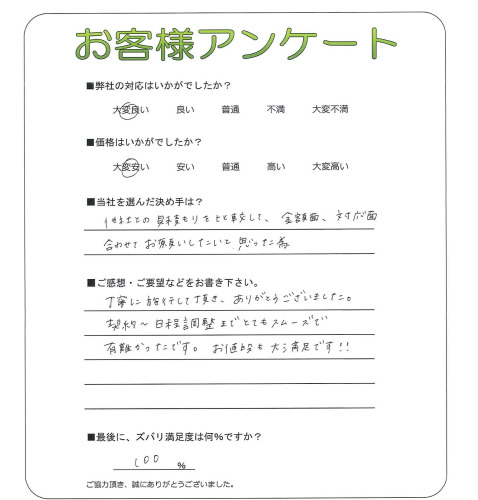 お客様アンケート
■弊社の対応はいかがでしたか？
大変良い 良い 普通 不満 大変不満
■価格はいかがでしたか？
大変安い 安い 普通 高い 大変高い
■当社を選んだ決め手は？
他社との見積もりを比較して、金額面、対応面
合わせてお願いしたいと思った為
■ご感想・ご要望などをお書き下さい。
丁寧に施行して頂き、ありがとうございました。
契約〜日程調整までとてもスムーズで
有難かったです。お値段も大満足です!!
■最後に、ズバリ満足度は何%ですか？
100 %
ご協力頂き、誠にありがとうございました。